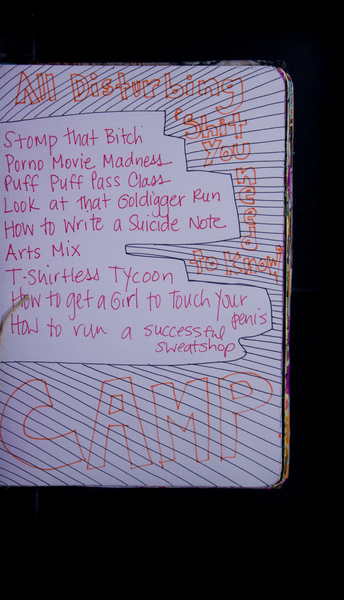 All Disturbing
"Shit
You
need
to Know"
Stomp that Bitch
Porno Movie Madness
Puff Puff Pass Class
Look at that Goldigger Run
How to Write a Suicide Note
Arts Mix
T-Shirtless Tycoon
How to get a Girl to Touch Your
penis
How to run a successful
sweatshop
CAMP